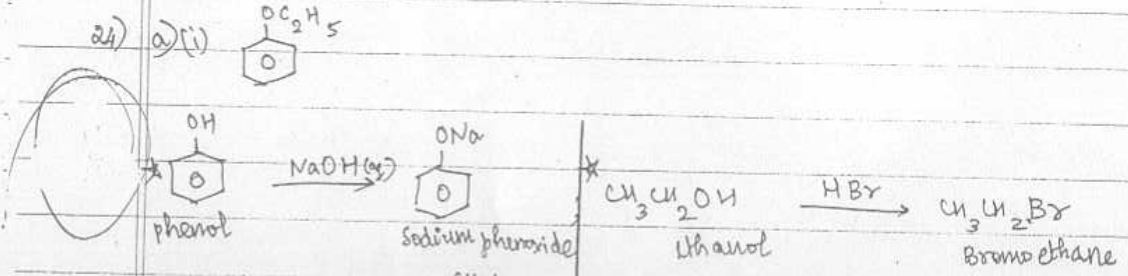 24) a)(i) OC2H5
OH NaOH(aq) ONa
phenol Sodium phenoxide
CH3CH2OH HBr CH3CH2Br
Ethanol Bromo ethane